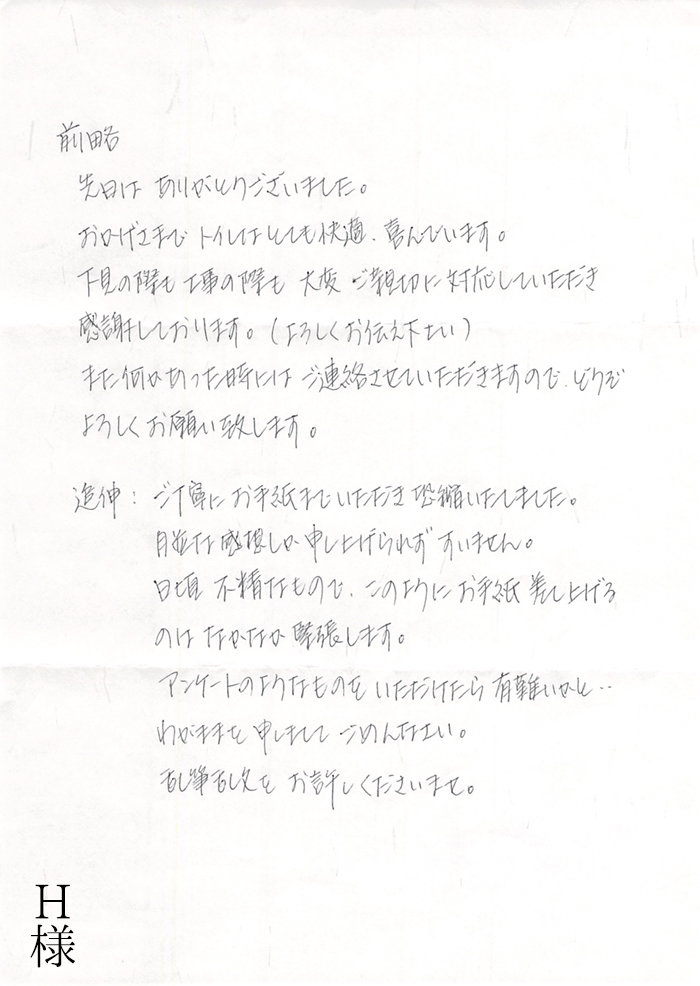 前略
先日は ありがとうございました。
おかげさまで トイレはとても快適、喜んでいます。
下見の際も 工事の際も 大変 ご親切に対応していただき
感謝しております。(よろしくお伝え下さい)
また何かあった時には ご連絡させていただきますので、どうぞ
よろしくお願い致します。
追伸: ご丁寧に お手紙まで いただき 恐縮いたしました。
月並な感想しか 申し上げられず すいません。
日頃 不精なもので、このように お手紙 差し上げる
のは なかなか 緊張します。
アンケートのようなものを いただけたら 有難いかと‥
わがままを 申しまして ごめんなさい。
乱筆乱文を お許しくださいませ。
H
様